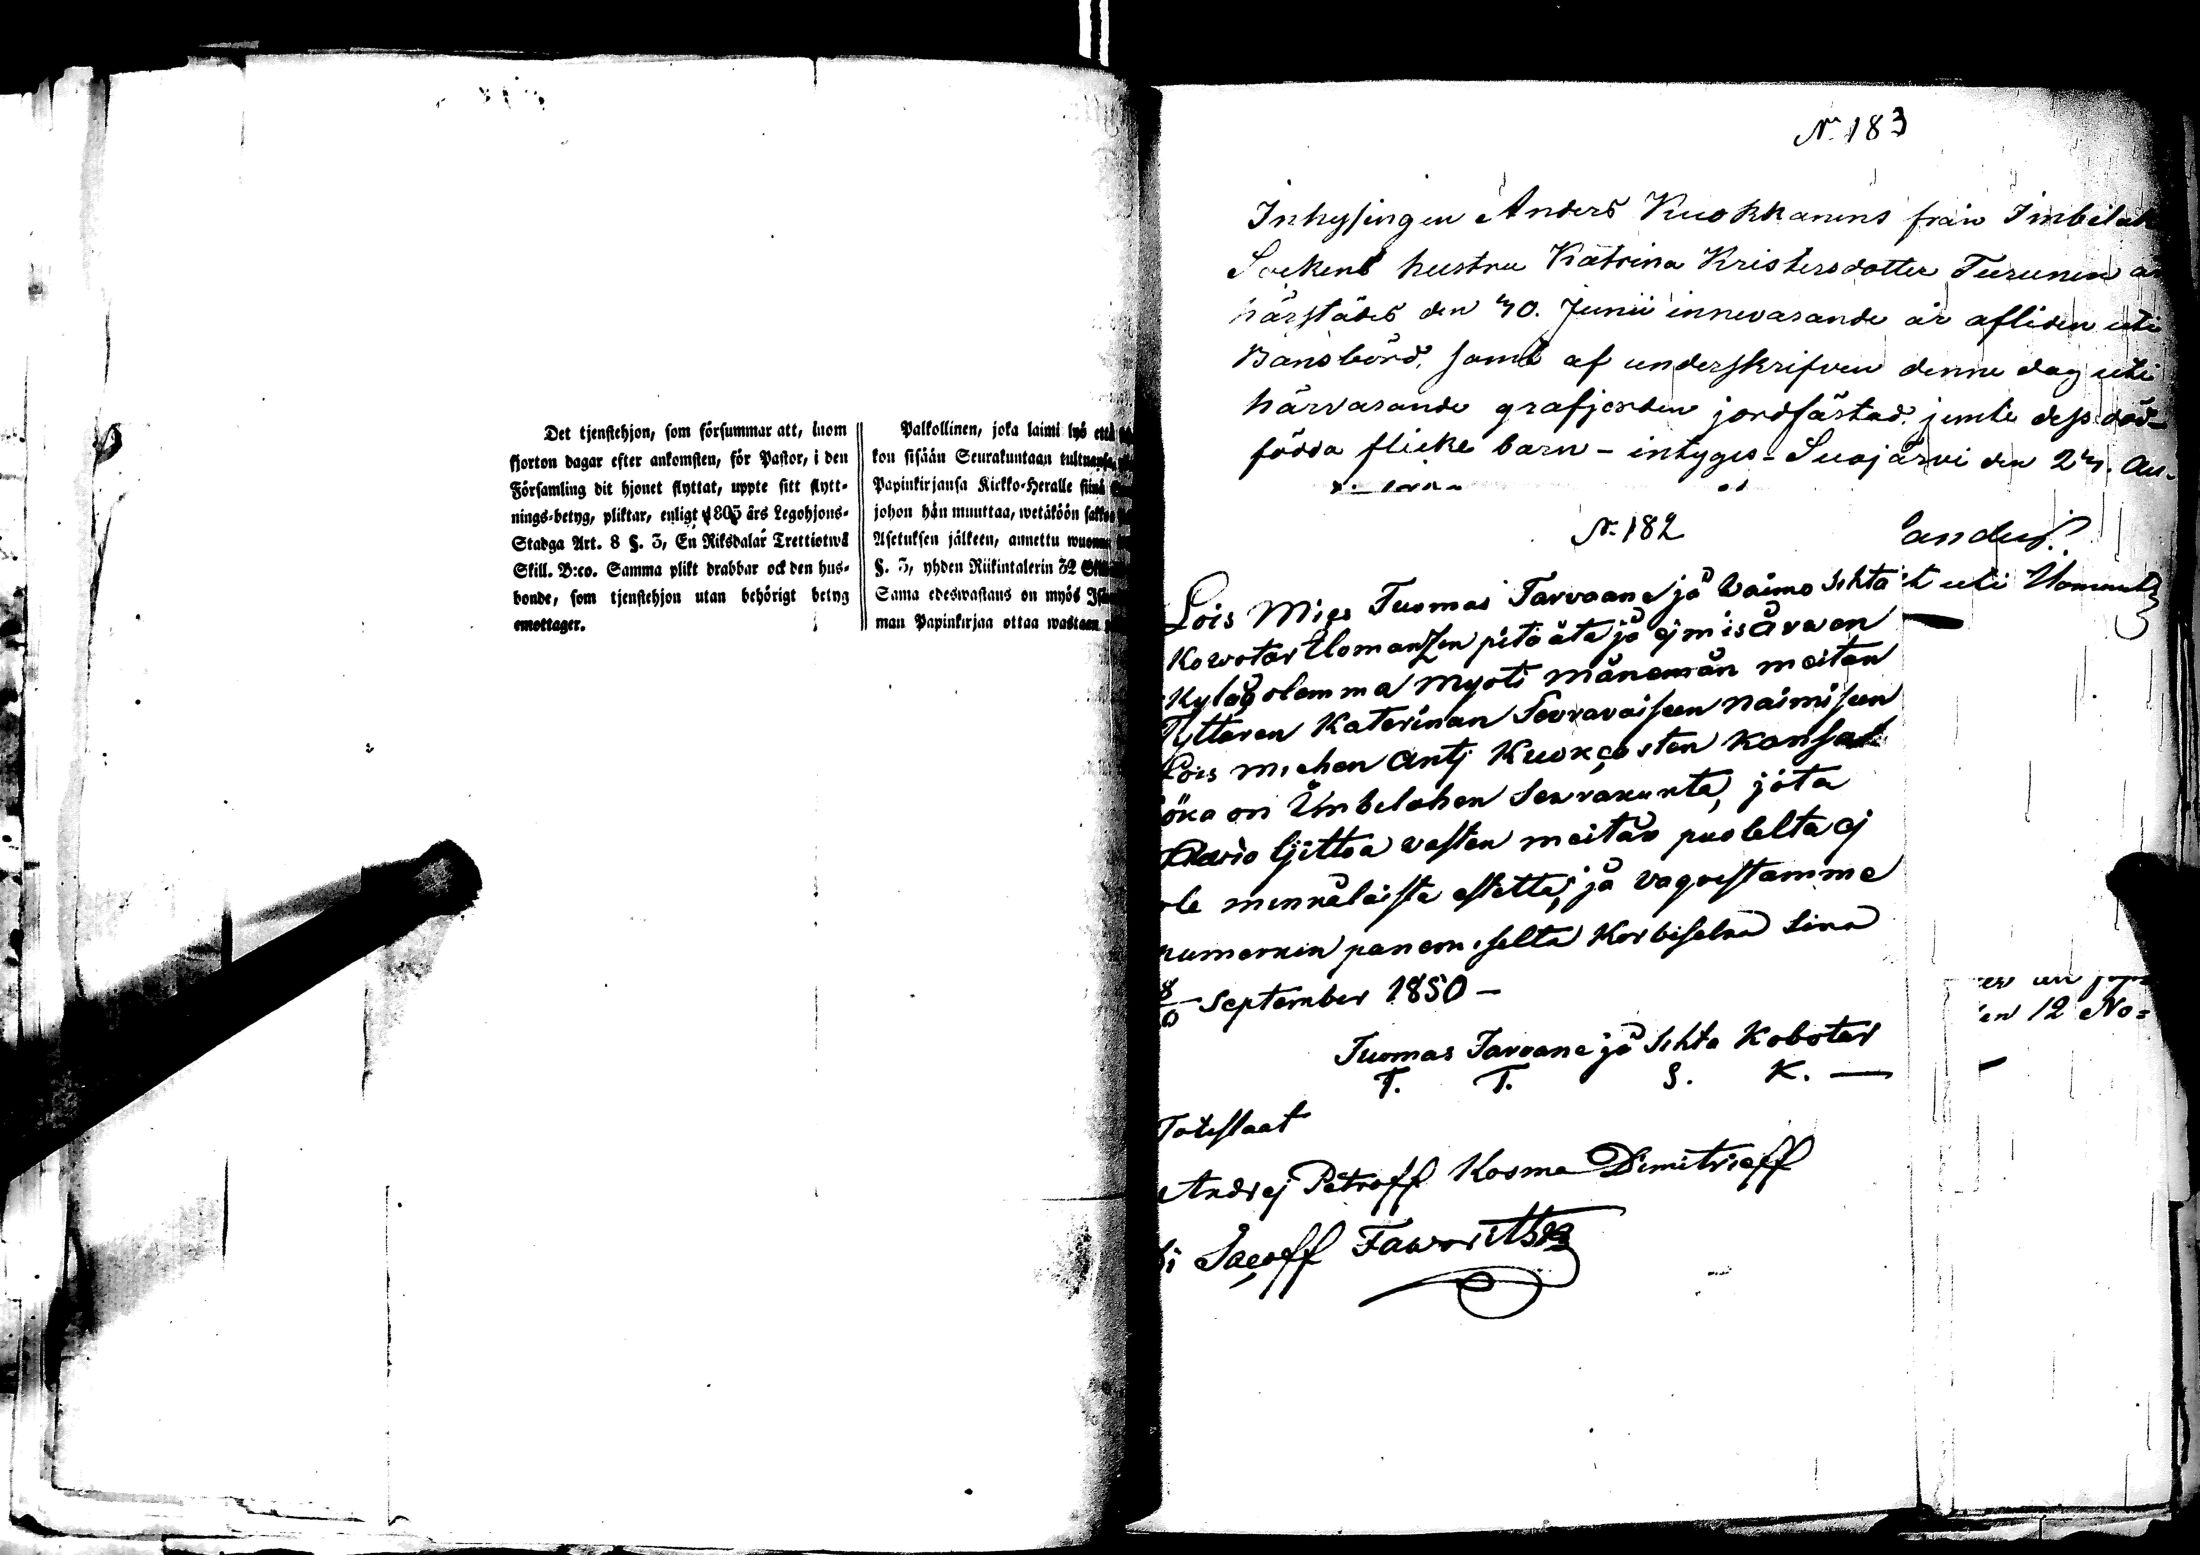 Det tjenstehjon, som försummar att, inom
fjorton dagar efter ankomsten, för Pastor, i den
Församling dit hjonet flyttat, uppte sitt flytt-
nings-betyg, pliktar, enligt 1805 års Legohjons-
Stadga Art. 8 §. 3, En Riksdalar Trettiotwå
Skill. B:co. Samma plikt drabbar ock den hus-
bonde, som tjenstehjon utan behörigt betyg
emottager.
Palkollinen, joka laimi lyö että
kon sisään Seurakuntaan tultuansa,
Papinkirjansa Kirkko-Heralle siinä
johon hän muuttaa, wetäköön sakkoa
Asetuksen jälkeen, annettu wuonna
§. 3, yhden Riikintalerin 32
Sama edeswastaus on myös
man Papinkirjaa ottaa wastaan
No 183
Inhysingen Anders Kuokkanens från Imbilaks
Sockens hustru Katrina Kristersdotter Turunen
härstädes den 30. Junii innevarande år afliden uti
Barnsbörd, samt af underskrifven denne dag uti
härvarande grafjorden jordfästad, jemte dess död-
födda flicke barn - intyges - Suojärvi den 23. Au-
No 182
Lois Mies Tuomas Tarvaane ja Vaimo Sihta
t uti Ilomants
Kowotar Ilomanzen pitäätä ja
Kylää olemma Myöti mänemän meitan
Tyttaren Katerinan Seuravaiseen naimiseen
Lois miehen Antj Kuokcosten Kansa
öka on Imbelahen Seurakunta, jota
Awio lijittoa vasten meitan puolelta ej
ole minnälaista estettä, ja vaqvestamme
numerkin panemiselta Korbiselkä Sinä
8/6 September 1850 -
Tuomas Tarvane ja Sihta Kobotar
T. T. S. K. -
Totistaat
Andrej Petroff Kosma Dimitrieff
Jacoff Faworitsky
en 12 No=